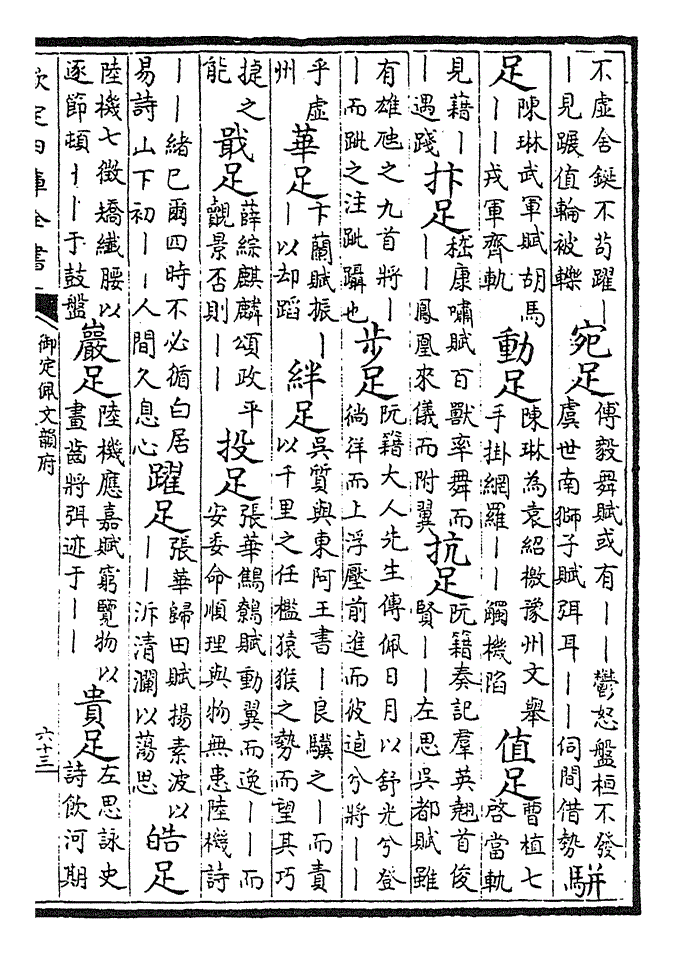 不虛舍鋋不苟躍｜
｜見蹍值輪被轢
宛足
傅毅舞賦或有｜｜鬱怒盤桓不發
虞世南獅子賦弭耳｜｜伺間借勢
駢
足
陳琳武軍賦胡馬
｜｜戎軍齊軌
動足
陳琳為袁紹檄豫州文舉
手掛網羅｜｜觸機陷
值足
曹植七
啓當軌
見藉｜
｜遇踐
抃足
嵇康嘯賦百獸率舞而
｜｜鳳凰來儀而附翼
抗足
阮籍奏記羣英翹首俊
賢｜｜左思吳都賦雖
有雄虺之九首將｜
｜而跐之注跐躡也
步足
阮籍大人先生傳佩日月以舒光兮登
徜徉而上浮壓前進而彼逌兮將｜｜
乎虛
州
華足
卞蘭賦振｜
｜以却蹈
絆足
吳質與東阿王書｜良驥之｜而責
以千里之任檻猿猴之勢而望其巧
捷之
能
戢足
薛綜麒麟頌政平
覿景否則｜｜
投足
張華鷦鷯賦動翼而逸｜｜而
安委命順理與物無患陸機詩
｜｜緒已爾四時不必循白居
易詩山下初｜｜人間久息心
躍足
張華歸田賦揚素波以
｜｜泝清瀾以蕩思
皓足
陸機七徵矯纖腰以
逐節頓｜｜于鼓盤
巖足
陸機應嘉賦窮覽物以
晝齒將弭迹于｜｜
貴足
左思詠史
詩飲河期
欽定四庫全書
御定佩文韻府
六十三